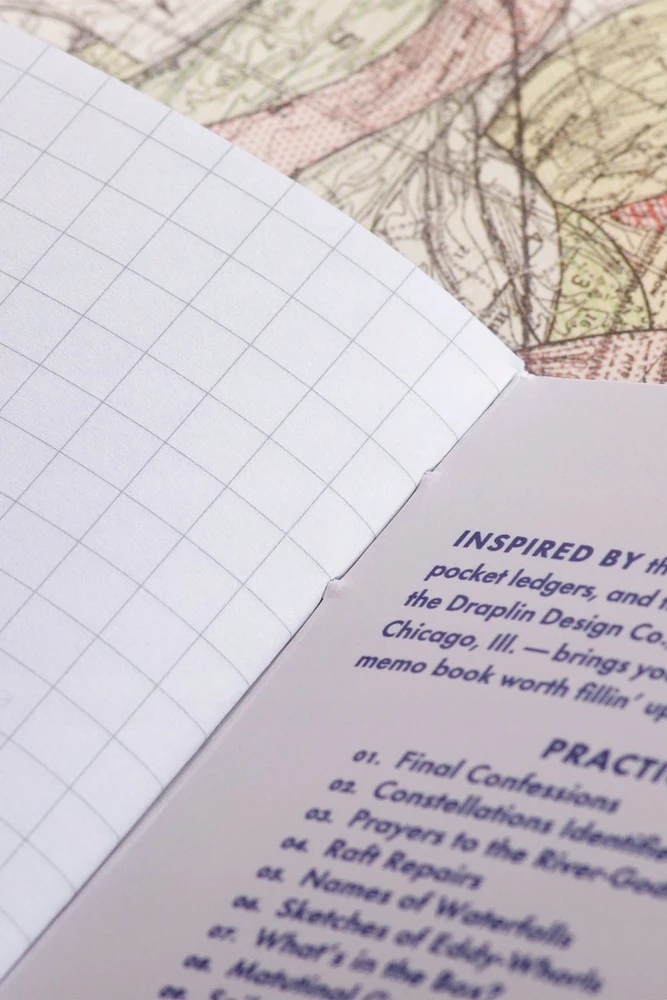 INSPIRED BY
pocket ledgers, and
the Draplin Design Co.
Chicago, Ill. — brings
memo book worth fillin'
01. Final Confessions
02. Constellations
03. Prayers to the
04. Raft Repairs
05. Names of Waterfalls
06. Sketches of Eddy-Whorls
07. What's in the Box?
08. Matutinal
09.